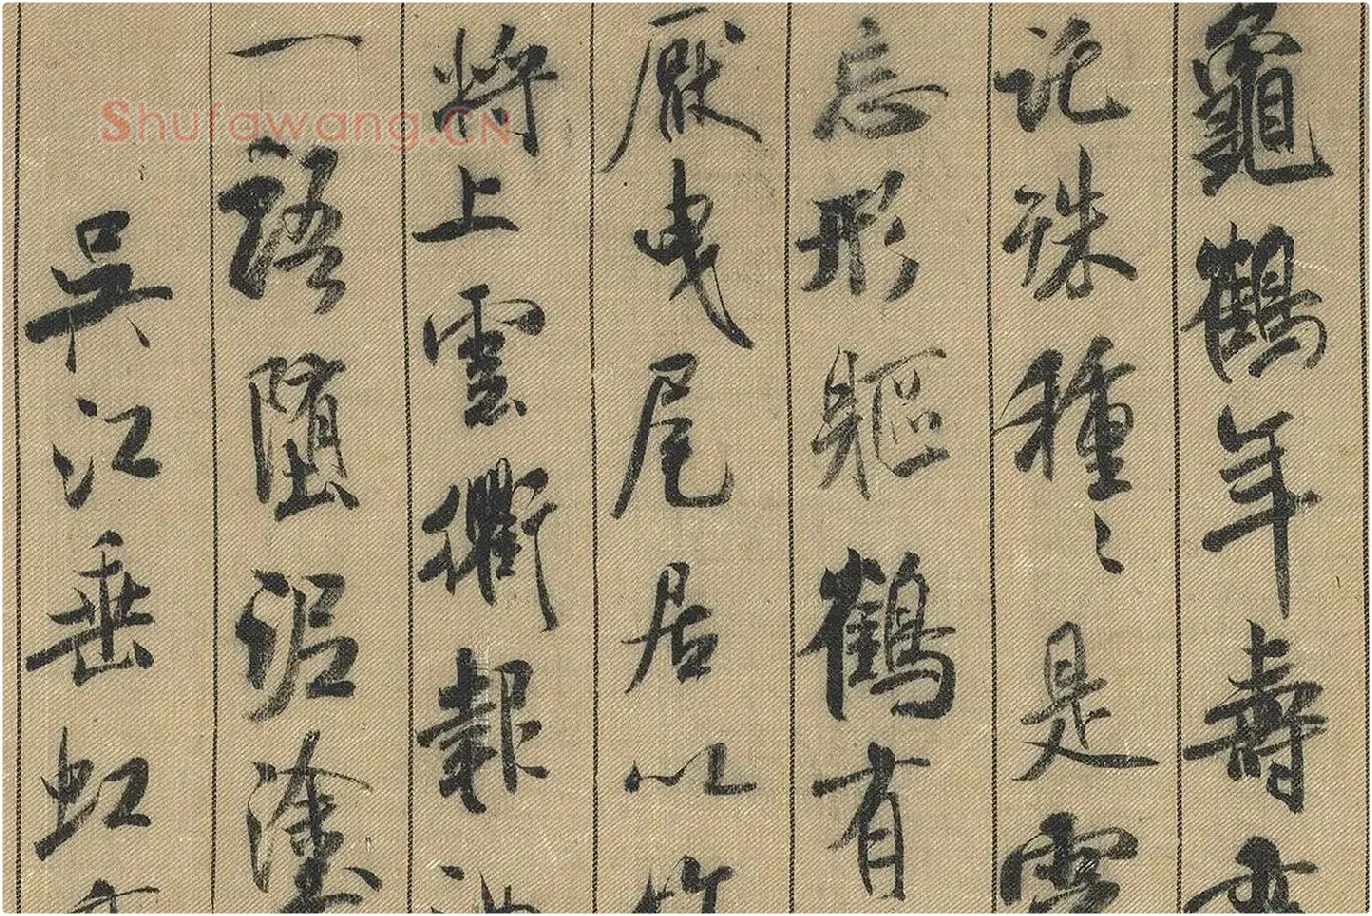 龜鶴年壽
託殊種〻是
忘形軀鶴有
厭曳尾居以
將上雲衢報
一語墮泥塗
吳江垂虹
Shufawang.CN